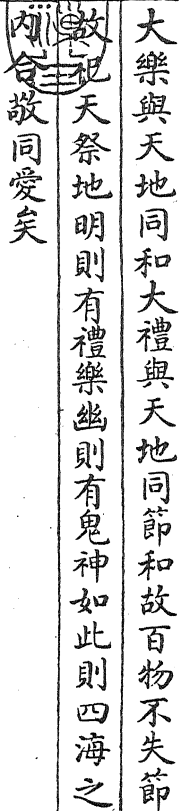 大樂與天地同和大禮與天地同節和故百物不失節
故祀天祭地明則有禮樂幽則有鬼神如此則四海之
内合敬同愛矣